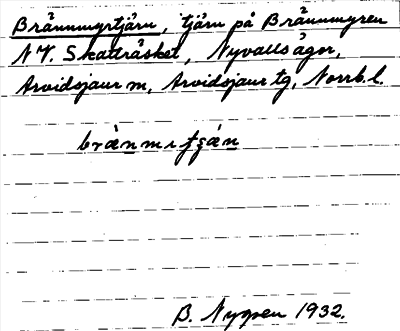 Brännmyrtjärn, tjärn på Brännmyren
NV. Skatträsket, Nyvalls ägor,
Arvidsjaur m, Arvidsjaur tg, Norrb. l.
B. Nygren 1932.